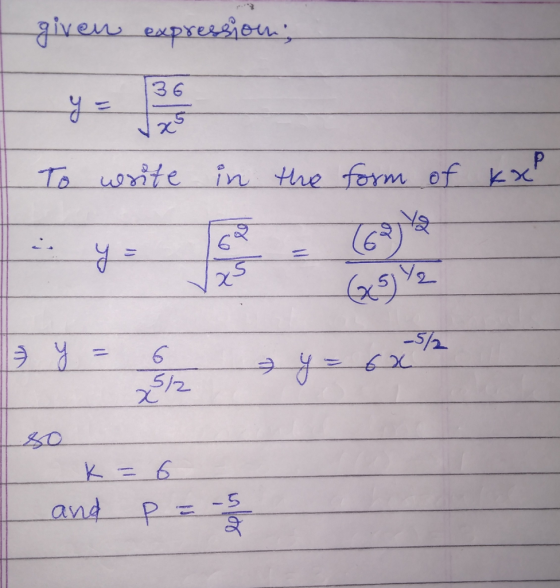 given expression;
y = √(36/x⁵)
To write in the form of kx^p
∴ y = √(6²/x⁵) = (6²)^1/2 / (x⁵)^1/2
⇒ y = 6/x^5/2 ⇒ y = 6x^-5/2
so
k = 6
and p = -5/2